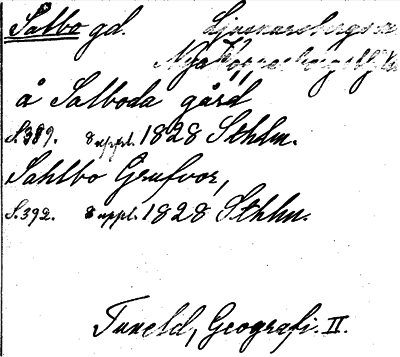 Salbo gd. Ljusnarsbergs
Nya Kopparbergs
å Salboda gård
S. 389. 8 uppl. 1828 Sthlm.
Sahlbo Grufvor,
S. 392. 8 uppl. 1828 Sthlm.
Tuneld, Geografi. II.